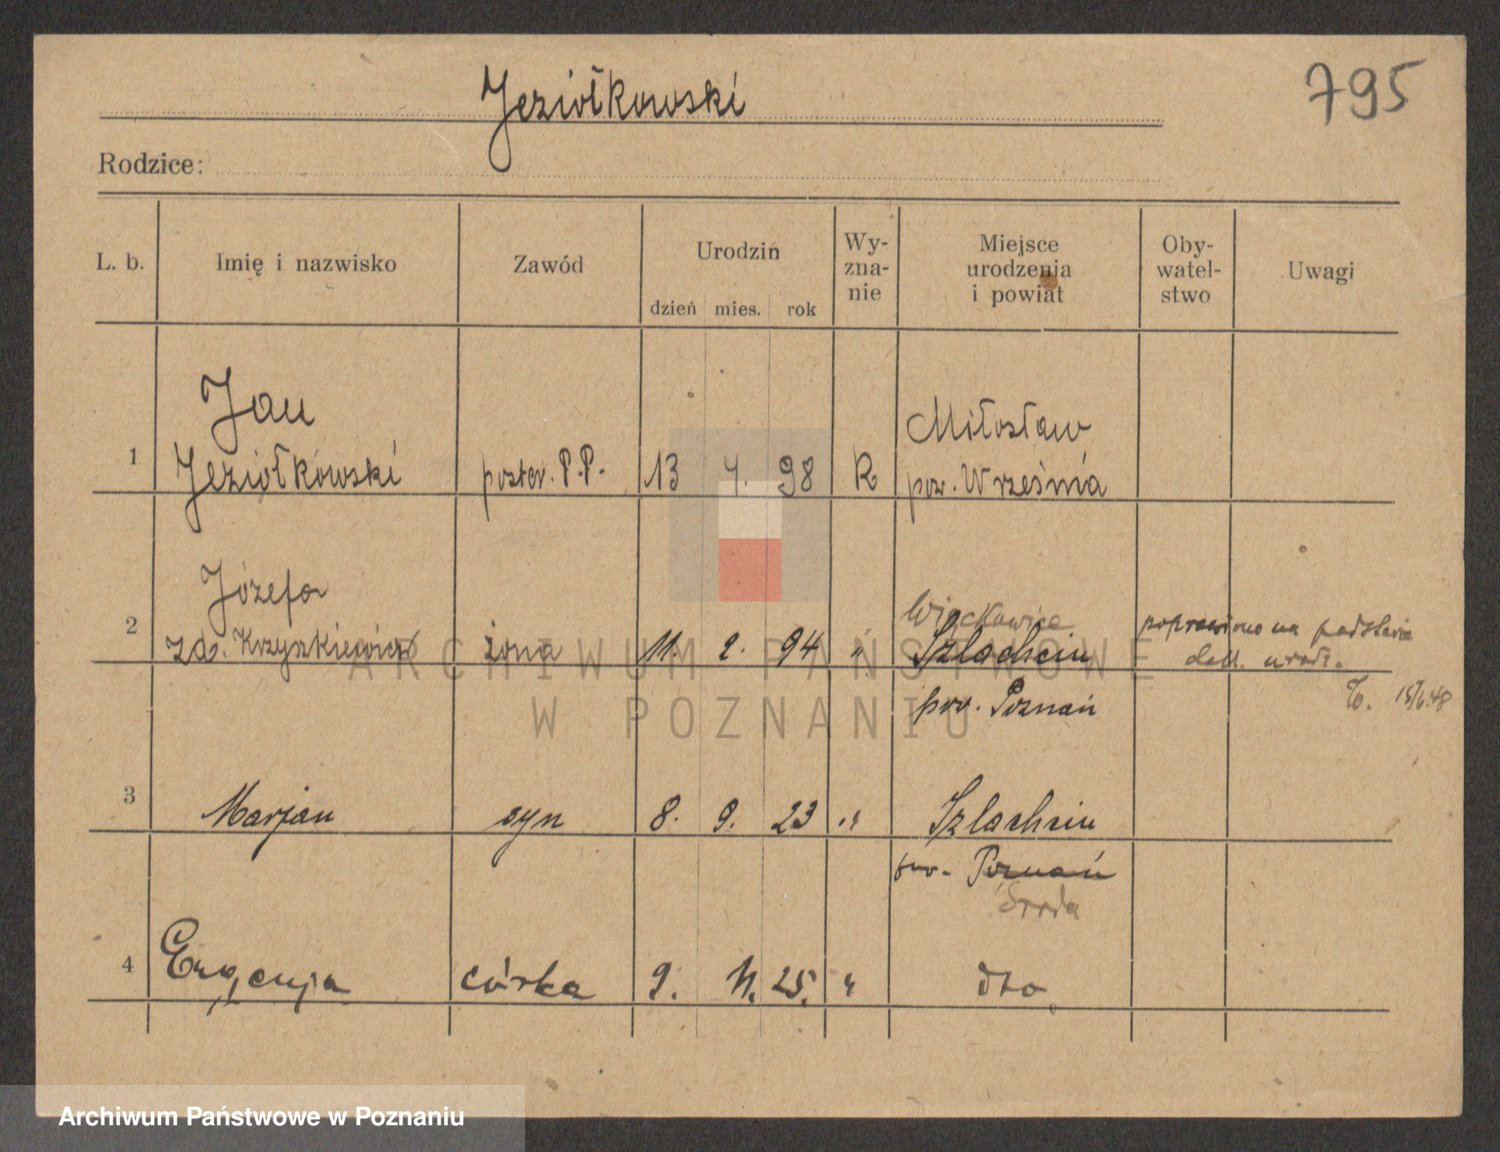 Jeziółkowski
795
Rodzice:
L. b. Imię i nazwisko Zawód Urodzin Wy-zna-nie Miejsce urodzenia i powiat Oby-watel-stwo Uwagi
dzień mies. rok
Jan
Miłosław
1 Jeziółkowski poster. P.P. 13 4. 98 R pow. Września
Józefa
Więckowice
2 zd. Krzyszkiewicz żona 11. 2. 94 " Szlachcin poprawiono na podstawie
dok. urodz.
pow. Poznań 15/6.48
3 Marjan syn 8. 9. 23 " Szlachcin
pow. Poznań
Środa
4 Eugenja córka 9. 11. 25. " dto
ARCHIWUM PAŃSTWOWE
W POZNANIU
Archiwum Państwowe w Poznaniu